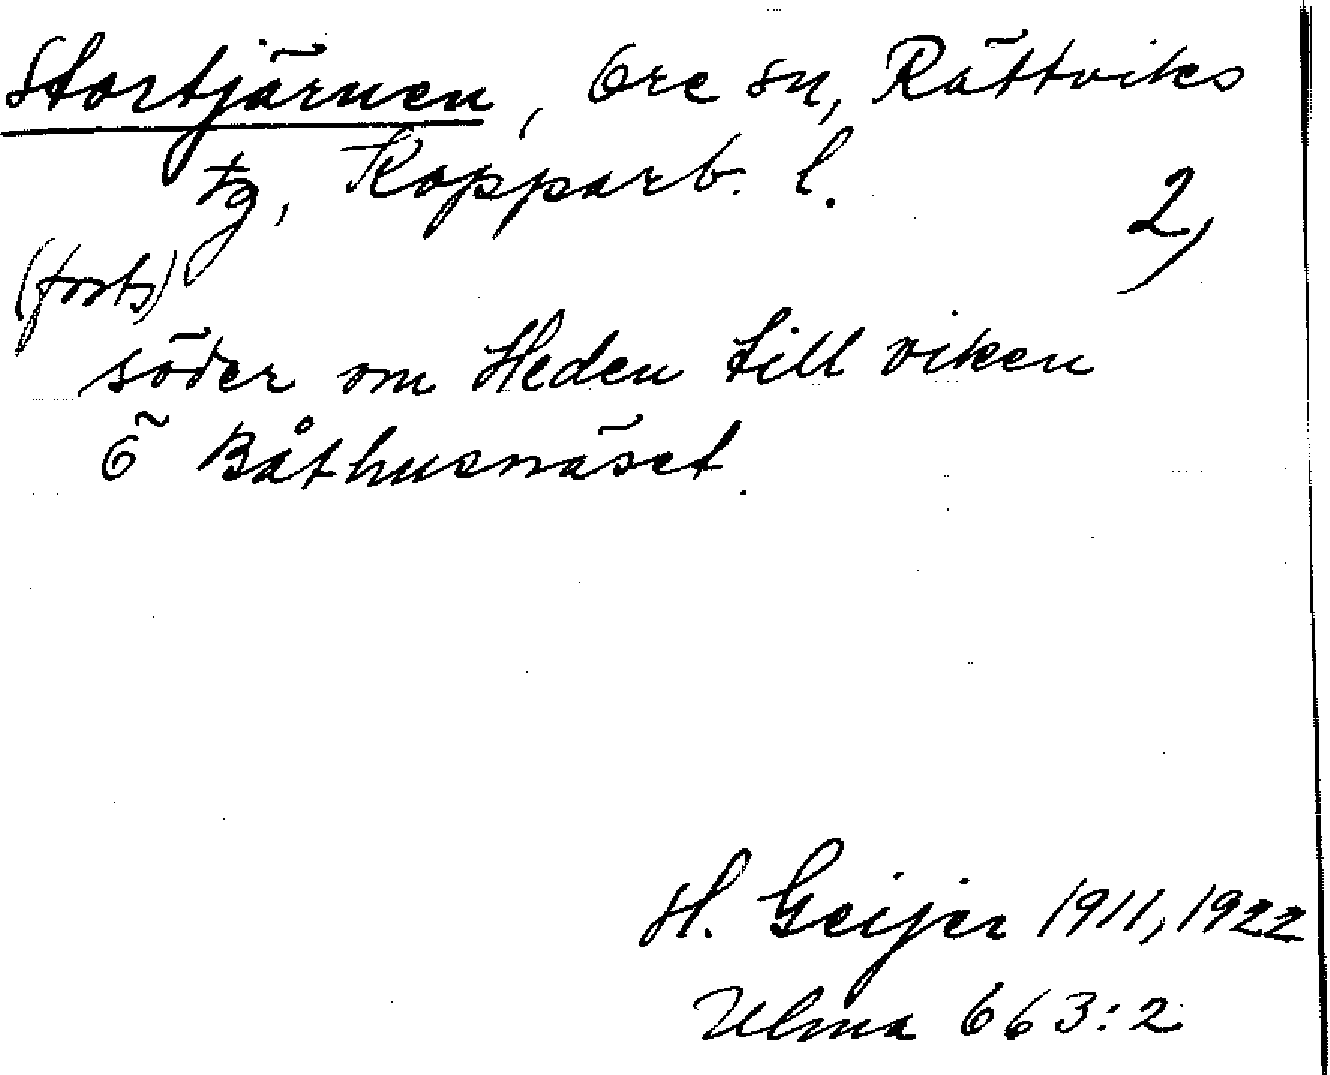 Stortjärnen, Ore sn, Rättviks
tg, Kopparb. l.
2)
(forts)
söder om Heden till viken
ö Båthusnäset.
H. Geijer 1911, 1922
Ulma 663:2